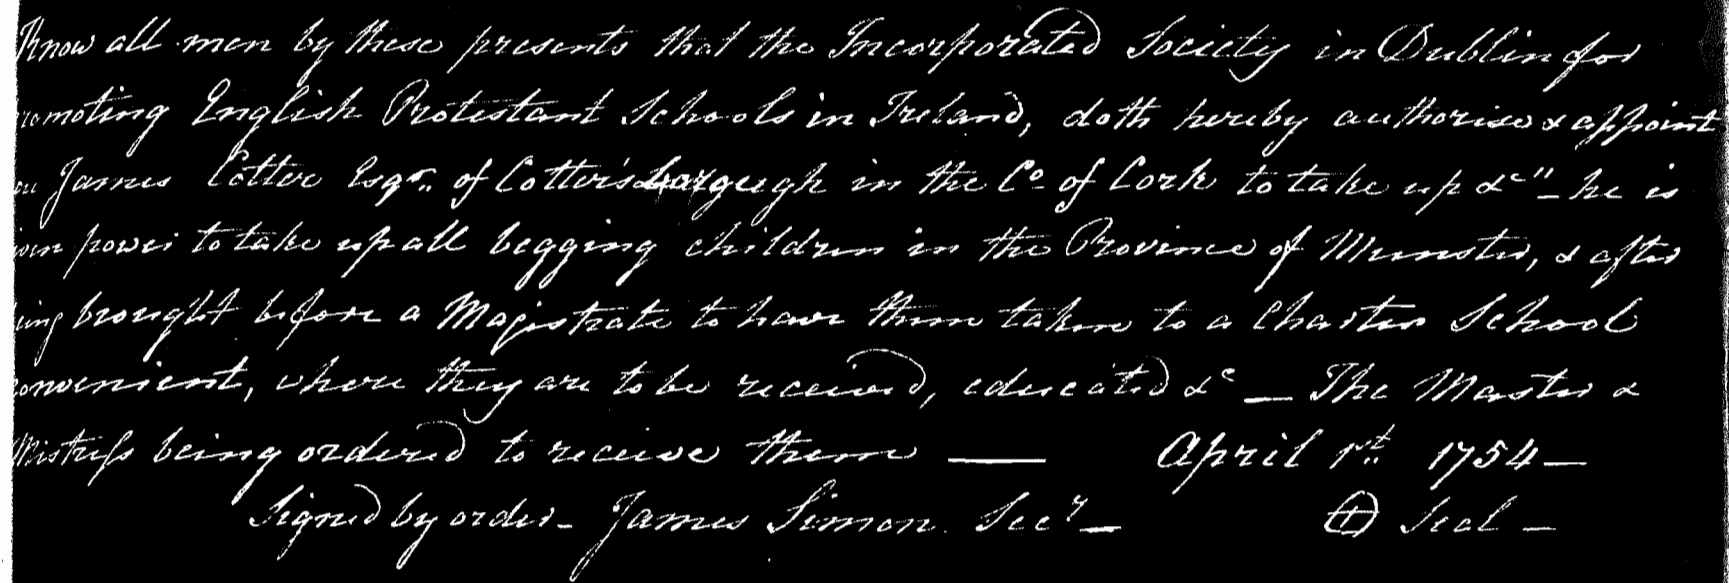 Know all men by these presents that the Incorporated Society in Dublin for
romoting English Protestant Schools in Ireland, doth hereby authorise & appoint
ou James Cotter Esqr. of Cotter's in the Co. of Cork to take up &c" - he is
iven power to take up all begging children in the Province of Munster, & after
eing brought before a Magistrate to have them taken to a Charter School
convenient, where they are to be received, educated &c — The Master &
Mistress being ordered to receive them —— April 1st. 1754 —
Signed by order - James Simon. Secr —  Seal —